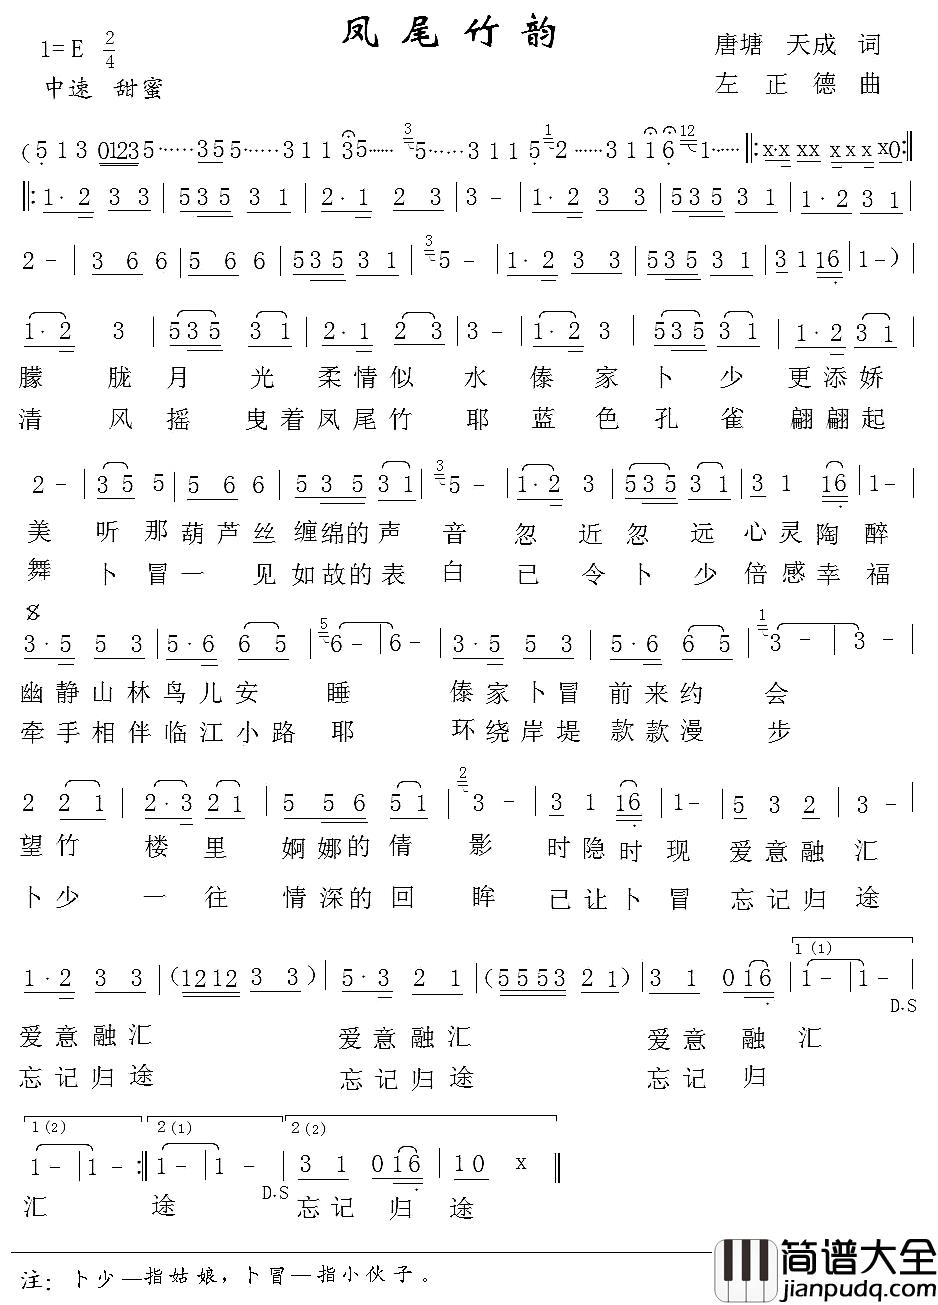 凤尾竹韵
1=E 2/4
唐塘 天成 词
中速 甜蜜
左正德 曲
(5 1 3 0123 5······3 5 5······3 1 1 3 5······ 3 5······3 1 1 5 1 2······3 1 1 6 12 1······ ‖: x·x xx x x x x0 :‖
‖: 1·2 3 3 | 5 3 5 3 1 | 2·1 2 3 | 3 - | 1·2 3 3 | 5 3 5 3 1 | 1·2 3 1 |
2 - | 3 6 6 | 5 6 6 | 5 3 5 3 1 | 3 5 - | 1·2 3 3 | 5 3 5 3 1 | 3 1 16 | 1 - ) |
1·2 3 | 5 3 5 3 1 | 2·1 2 3 | 3 - | 1·2 3 | 5 3 5 3 1 | 1·2 3 1 |
朦胧月光柔情似水傣家卜少更添娇
清风摇曳着凤尾竹耶蓝色孔雀翩翩起
2 - | 3 5 5 | 5 6 6 | 5 3 5 3 1 | 3 5 - | 1·2 3 | 5 3 5 3 1 | 3 1 16 | 1 - |
美听那葫芦丝缠绵的声音忽近忽远心灵陶醉
舞卜冒一见如故的表白已令卜少倍感幸福
𝄋
3·5 5 3 | 5·6 6 5 | 5 6 - | 6 - | 3·5 5 3 | 5·6 6 5 | 1 3 - | 3 - |
幽静山林鸟儿安睡傣家卜冒前来约会
牵手相伴临江小路耶环绕岸堤款款漫步
2 2 1 | 2·3 2 1 | 5 5 6 5 1 | 2 3 - | 3 1 16 | 1 - | 5 3 2 | 3 - |
望竹楼里婀娜的倩影时隐时现爱意融汇
卜少一往情深的回眸已让卜冒忘记归途
1·2 3 3 | (1212 3 3) | 5·3 2 1 | (5553 2 1) | 3 1 0 16 | 1(1) 1 - | 1 - |
D.S
爱意融汇 爱意融汇 爱意融汇
忘记归途 忘记归途 忘记归
1(2) 2(1) 2(2)
1 - | 1 - :‖ 1 - | 1 - | 3 1 0 16 | 1 0 x ‖
D.S
汇 途 忘记归途
注: 卜少—指姑娘,卜冒—指小伙子。
简谱大全
jianpudq.com